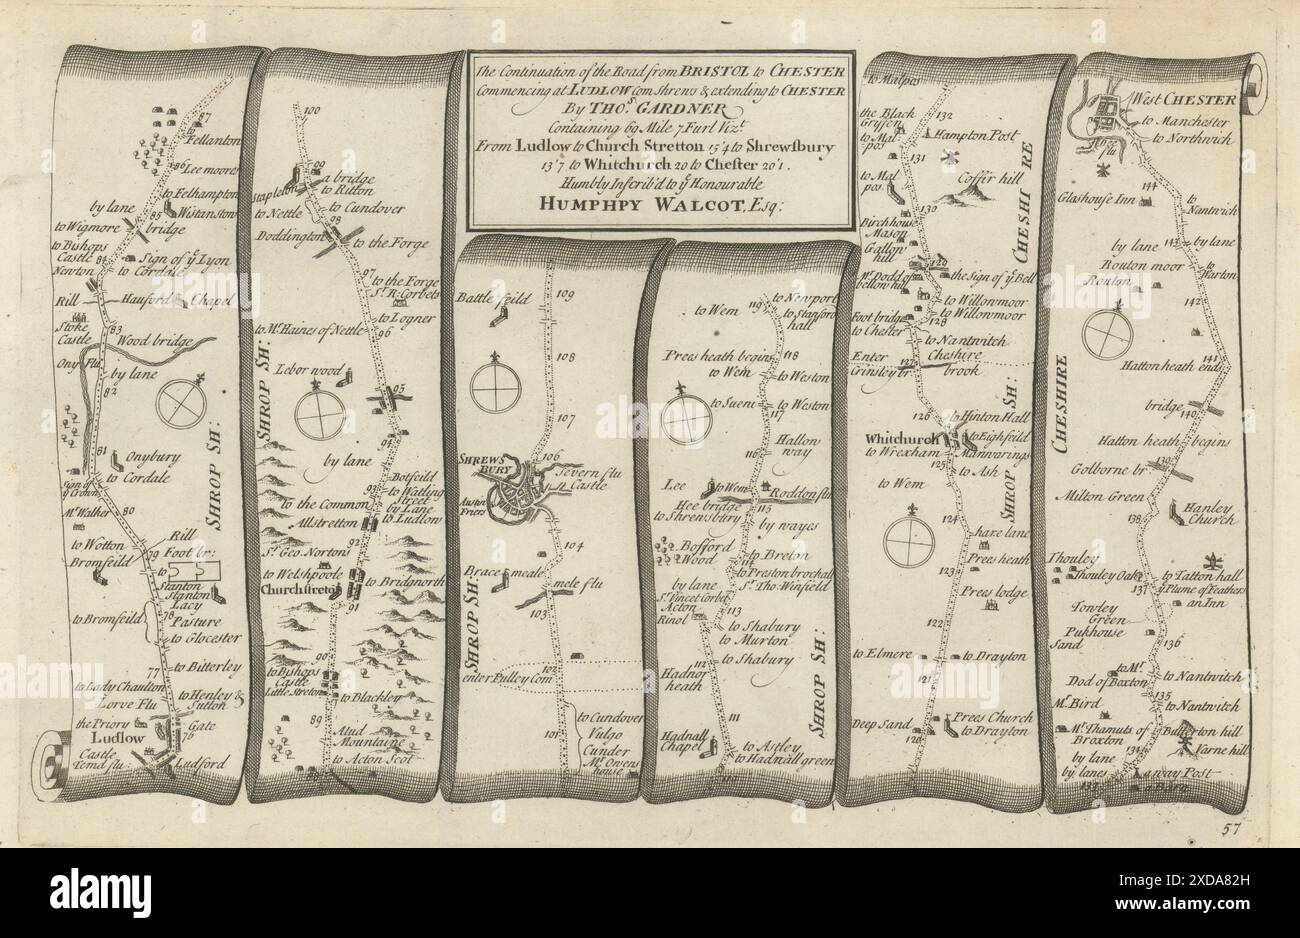 The Continuation of the Road from BRISTOL to CHESTER
Commencing at LUDLOW Com Shrens & extending to CHESTER
By THO.S GARDNER
Containing 69 Mile 7 Furl Viz.t
From Ludlow to Church Stretton 15'4 to Shrewsbury
13'7 to Whitchurch 20 to Chester 20'1.
Humbly Inscrib'd to y.e Honourable
HUMPHPY WALCOT, Esq:
87
to Fellanton
86
Lee moore
to Felhampton
by lane
Wistanstow
85
to Wigmore
bridge
to Bishops Castle
Sign of y.e Lyon
84
to Cordale
Newton
Rill
Hauford Chapel
Stoke Castle
83
Wood bridge
Ony Flu
by lane
82
SHROP SH:
81
Onybury
to Cordale
sign of y.e Crown
80
Mr. Walker
Rill
to Wotton
79
Foot br:
Bromfeild
to Stanton
Stanton Lacy
78
Pasture
to Bromfeild
to Glocester
77
to Bitterley
to Lady Chaulton
to Henley & Sutton
Corve Flu
the Priory
Gate
76
Ludlow
Castle
Temd flu:
Ludford
100
99
a bridge
Stapleton
to Ritton
to Nettle
to Cundover
98
Doddington
to the Forge
97
to the Forge
S.r R: Corbets
to Logner
to Mr. Haines of Nettle
96
SHROP SH:
Lebor wood
95
94
by lane
Botfeild
93
to Watling Street
to the Common
by Lane
Allstretton
to Ludlow
92
S.r Geo. Nortons
to Welshpoole
to Bridgnorth
Churchstreton
91
90
to Bishops Castle
Little Streton
to Blackley
89
Mud Mountaine
to Acton Scot
88
109
Battlefeild
108
107
SHREWSBURY
106
Severn flu
Castle
Austin Friers
104
Brace meale
mele flu
103
SHROP SH:
102
enter Pulley Com
to Cundover
Vulgo
Cunder
101
Mr. Owens house
119
to Newport
to Wem
to Stanford hall
Prees heath begins
118
to Wem
to Weston
to Sueni
to Weston
117
Hallow way
116
Lee
to Wem
Roddon flu
Hee bridge
115
to Shrensbury
by wayes
Bofford Wood
to Breton
114
to Preston brochall
by lane
S.r Tho: Winfield
S.r Vincet Corbet
Acton Rinol
113
to Shabury
to Murton
112
to Shabury
Hadnor heath
111
SHROP SH:
Hadnall Chapel
to Astley
to Hadnall green
110
to Malpas
132
the Black Gryffen
Hampton Post
to Malpos
131
to Malpos.
Coffir hill
130
CHESHIRE
Birchhouse
Mason
Gallon hill
129
Mr. Dodd of bellow hill
the Sign of y.e Bell
to Willowmoor
Foot bridge
to Willowmoor
to Chester
128
to Nantwitch
Enter Cheshire
Grinsley br
127
brook
126
to Hinton Hall
Whitchurch
to Eighfeild
to Wrexham
Mannarings
125
to Ash
to Wem
SHROP SH:
124
haxe lane
Prees heath
123
Prees lodge
122
to Elmere
to Drayton
121
Deep Sand
Prees Church
120
to Drayton
WEST CHESTER
to Manchester
to Northwich
Dee flu
144
Glashouse Inn
to Nantwich
by lane
143
by lane
Routon moor
to Warton
Routon
142
141
Hatton heath ends
CHESHIRE
bridge
140
Hatton heath begins
139
Golborne br
Milton Green
Hanley Church
138
Thouley
Thouley Oak
to Tatton hall
137
y.e Plume of Feathers an Inn
Towley Green
Pukhouse Sand
136
to Mr. Dod of Boxton
to Nantwitch
135
Mr. Bird
to Nantwitch
Mr. Thamuts of Broxton
Bullerton hill
134
Varne hill
by lane
by lanes
a way Post
133
a Barn
57
alamy
Image ID: 2XDA82H
www.alamy.com